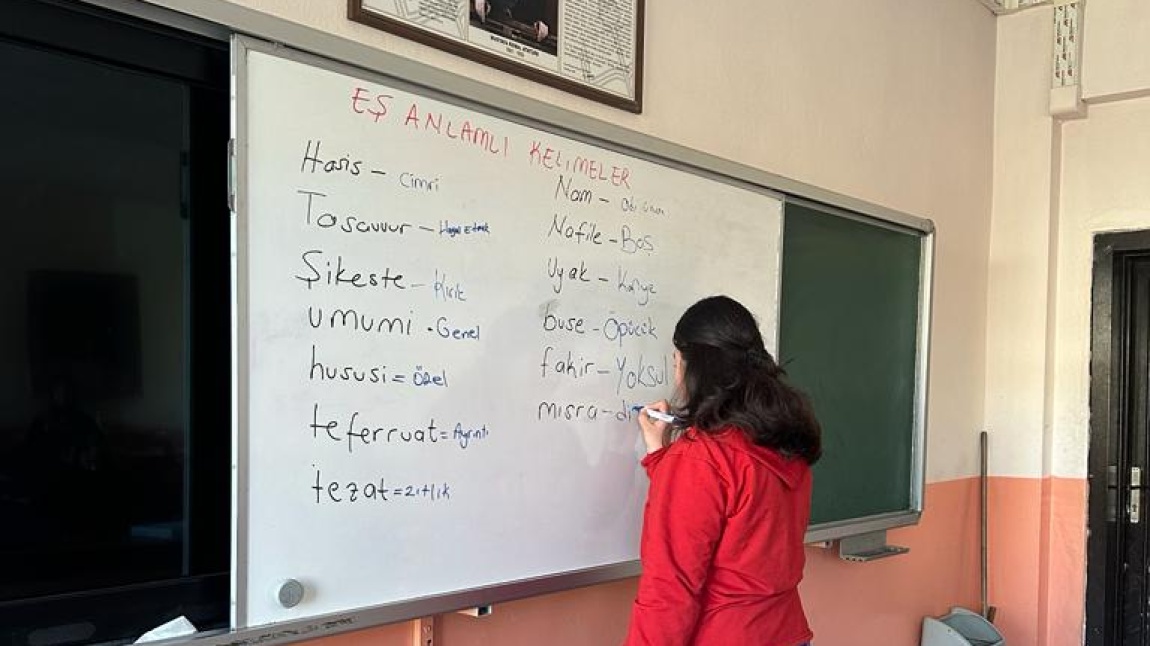 MUSTAFA KEMAL ATATÜRK
EŞ ANLAMLI KELİMELER
Hasis - Cimri
Tasavvur - Hayal Etmek
Şikeste - Kırık
umumi - Genel
hususi = özel
teferruat = Ayrıntı
tezat = zıtlık
Nam -
Nafile - Boş
Uyak -
buse - Öpücük
fakir - Yoksul
mısra - di